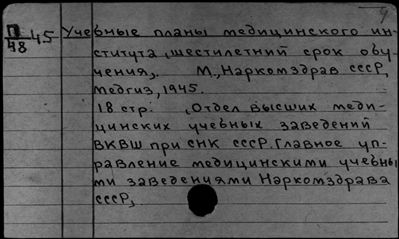 9
П/48 45 Учебные планы медицинского ин-
ститута, шестилетний срок обу-
чения,. М., Наркомздрав СССР,
Медгиз, 1945.
18 стр. ,Отдел высших меди-
цинских учебных заведений
ВКВШ при СНК СССР. Главное уп-
равление медицинскими учебны
ми заведениями Наркомздрава
СССР,